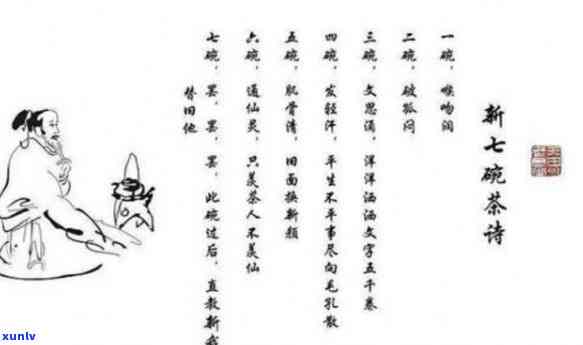 新七碗茶诗
一碗，喉吻润
二碗，破孤闷
三碗，文思涌，洋洋洒洒文字五千卷
四碗，发轻汗，平生不平事尽向毛孔散
五碗，肌骨清，旧面换新颜
六碗，通仙灵，只羡茶人不羡仙
七碗，罢，罢，罢，此碗过后，直教新我
替旧他
xunlv